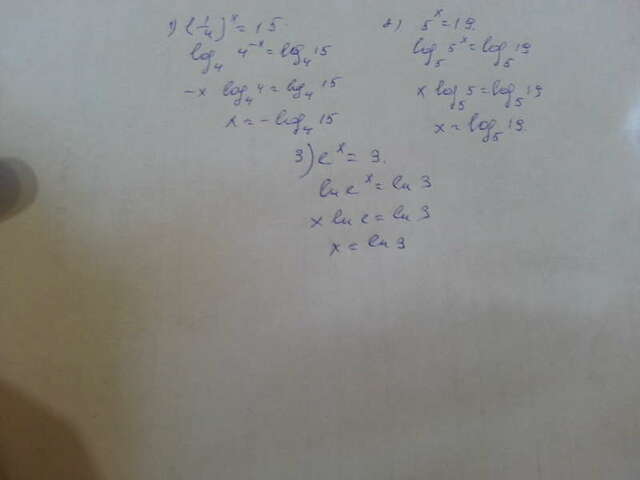 1) (1/4)^x = 15
log_4 4^-x = log_4 15
-x log_4 4 = log_4 15
x = -log_4 15
2) 5^x = 19.
log_5 5^x = log_5 19
x log_5 5 = log_5 19
x = log_5 19.
3) e^x = 3.
ln e^x = ln 3
x ln e = ln 3
x = ln 3